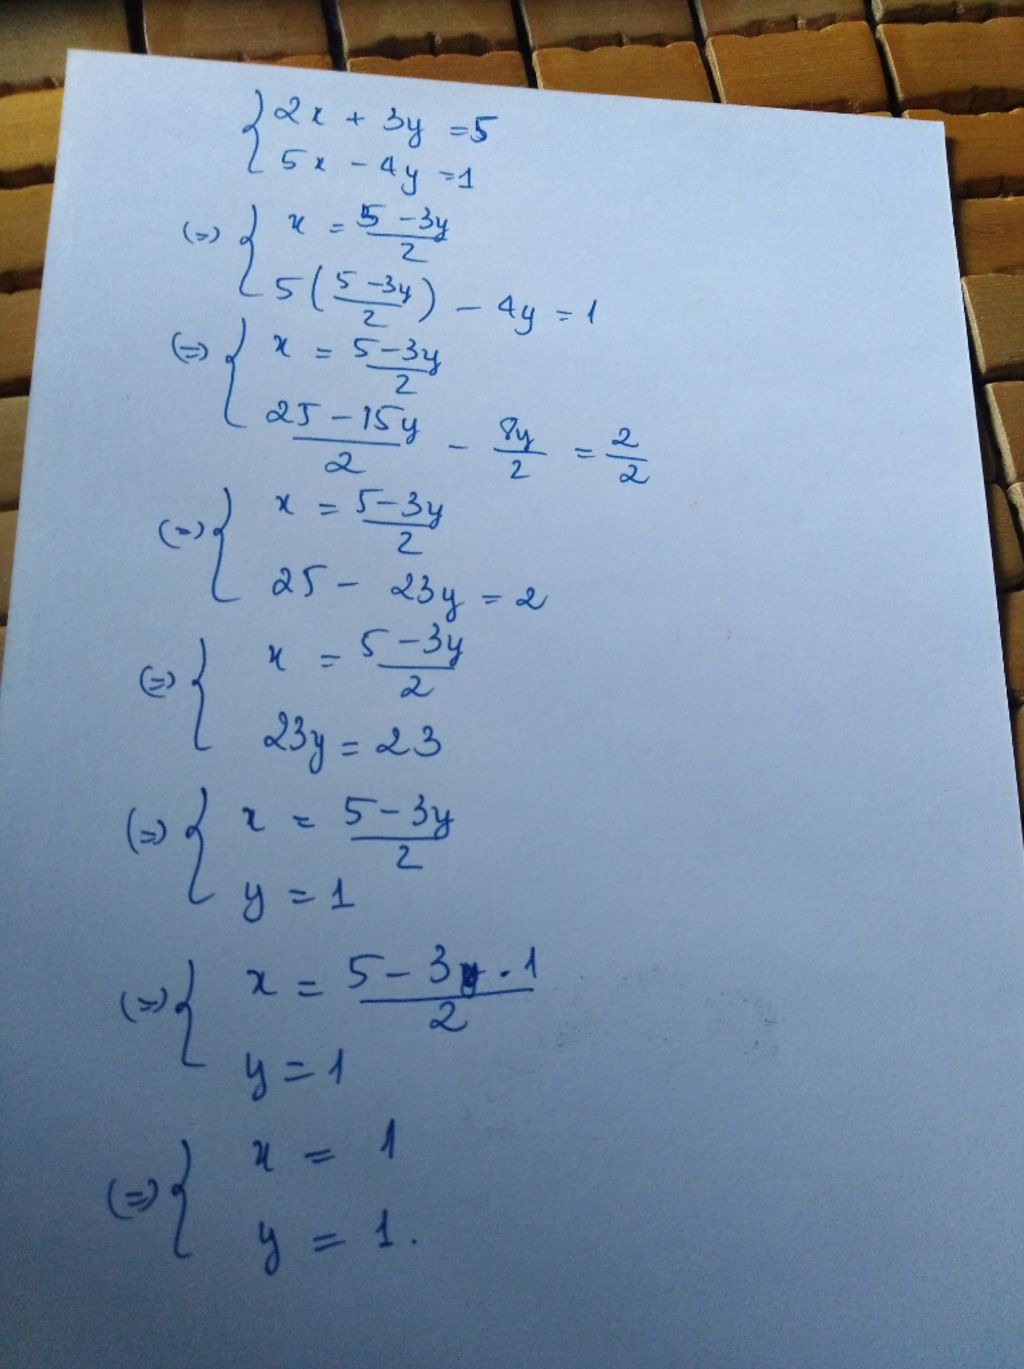 { 2x + 3y = 5
5x - 4y = 1
(=) { x = (5 - 3y)/2
5((5 - 3y)/2) - 4y = 1
(=) { x = (5 - 3y)/2
(25 - 15y)/2 - 8y/2 = 2/2
(=) { x = (5 - 3y)/2
25 - 23y = 2
(=) { x = (5 - 3y)/2
23y = 23
(=) { x = (5 - 3y)/2
y = 1
(=) { x = (5 - 3 . 1)/2
y = 1
(=) { x = 1
y = 1.